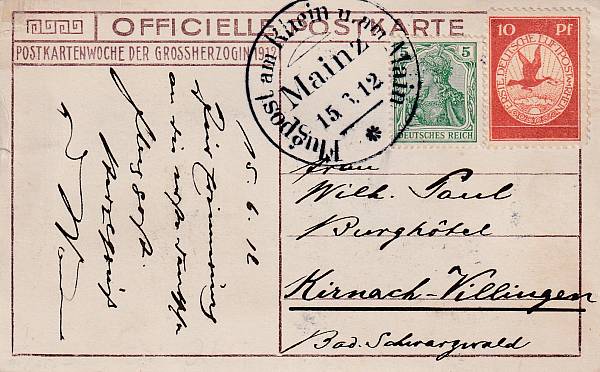 OFFICIELLE POSTKARTE
POSTKARTENWOCHE DER GROSSHERZOGIN 1912
Flugpost am Rhein u. am Main
Mainz
15.6.12
5
DEUTSCHES REICH
10 Pf
ERSTE DEUTSCHE LUFTPOST AM RHEIN
15.6.12
Zur Erinnerung
an die erste deutsche
Flugpost.
Frau
Wilh. Paul
Burghôtel
Kirnach-Villingen
Bad. Schwarzwald